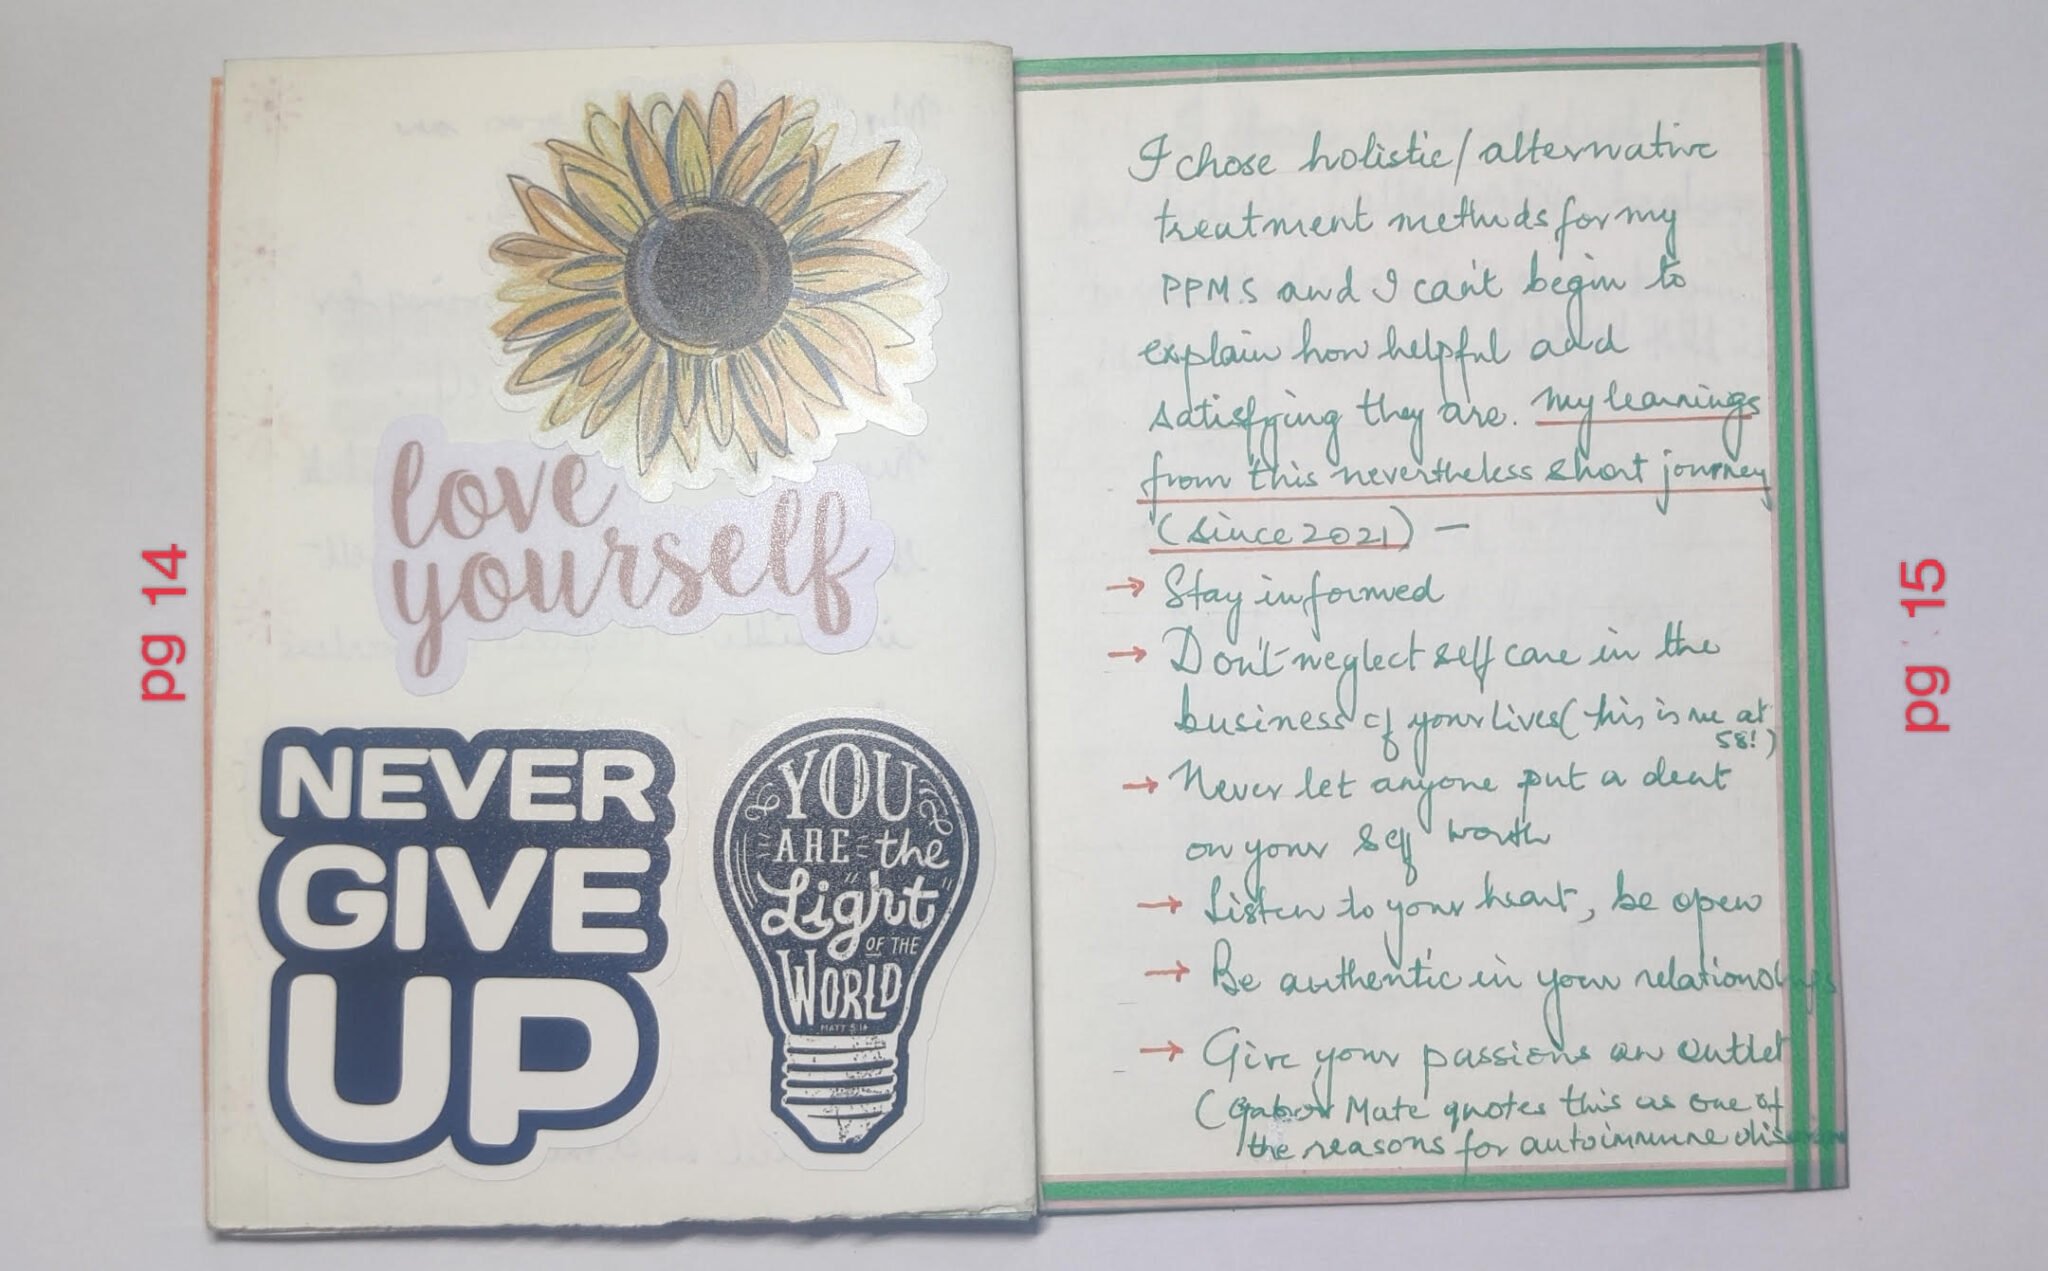 love
yourself
NEVER
GIVE
UP
YOU
ARE the
"Light"
OF THE
WORLD
MATT 5:14
pg 14
I chose holistic/alternative
treatment methods for my
PPMS and I can't begin to
explain how helpful and
satisfying they are. My learnings
from this nevertheless short journey
(since 2021) —
→ Stay informed
→ Don't neglect self care in the
business of your lives (this is me at
58!)
→ Never let anyone put a dent
on your self worth
→ Listen to your heart, be open
→ Be authentic in your relationships
→ Give your passions an outlet
(Gabor Mate quotes this as one of
the reasons for autoimmune
pg 15